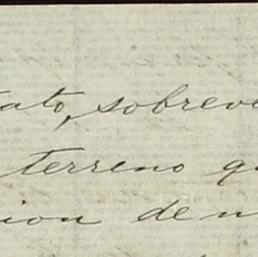 tato, sobreve
terreno q
ion de n